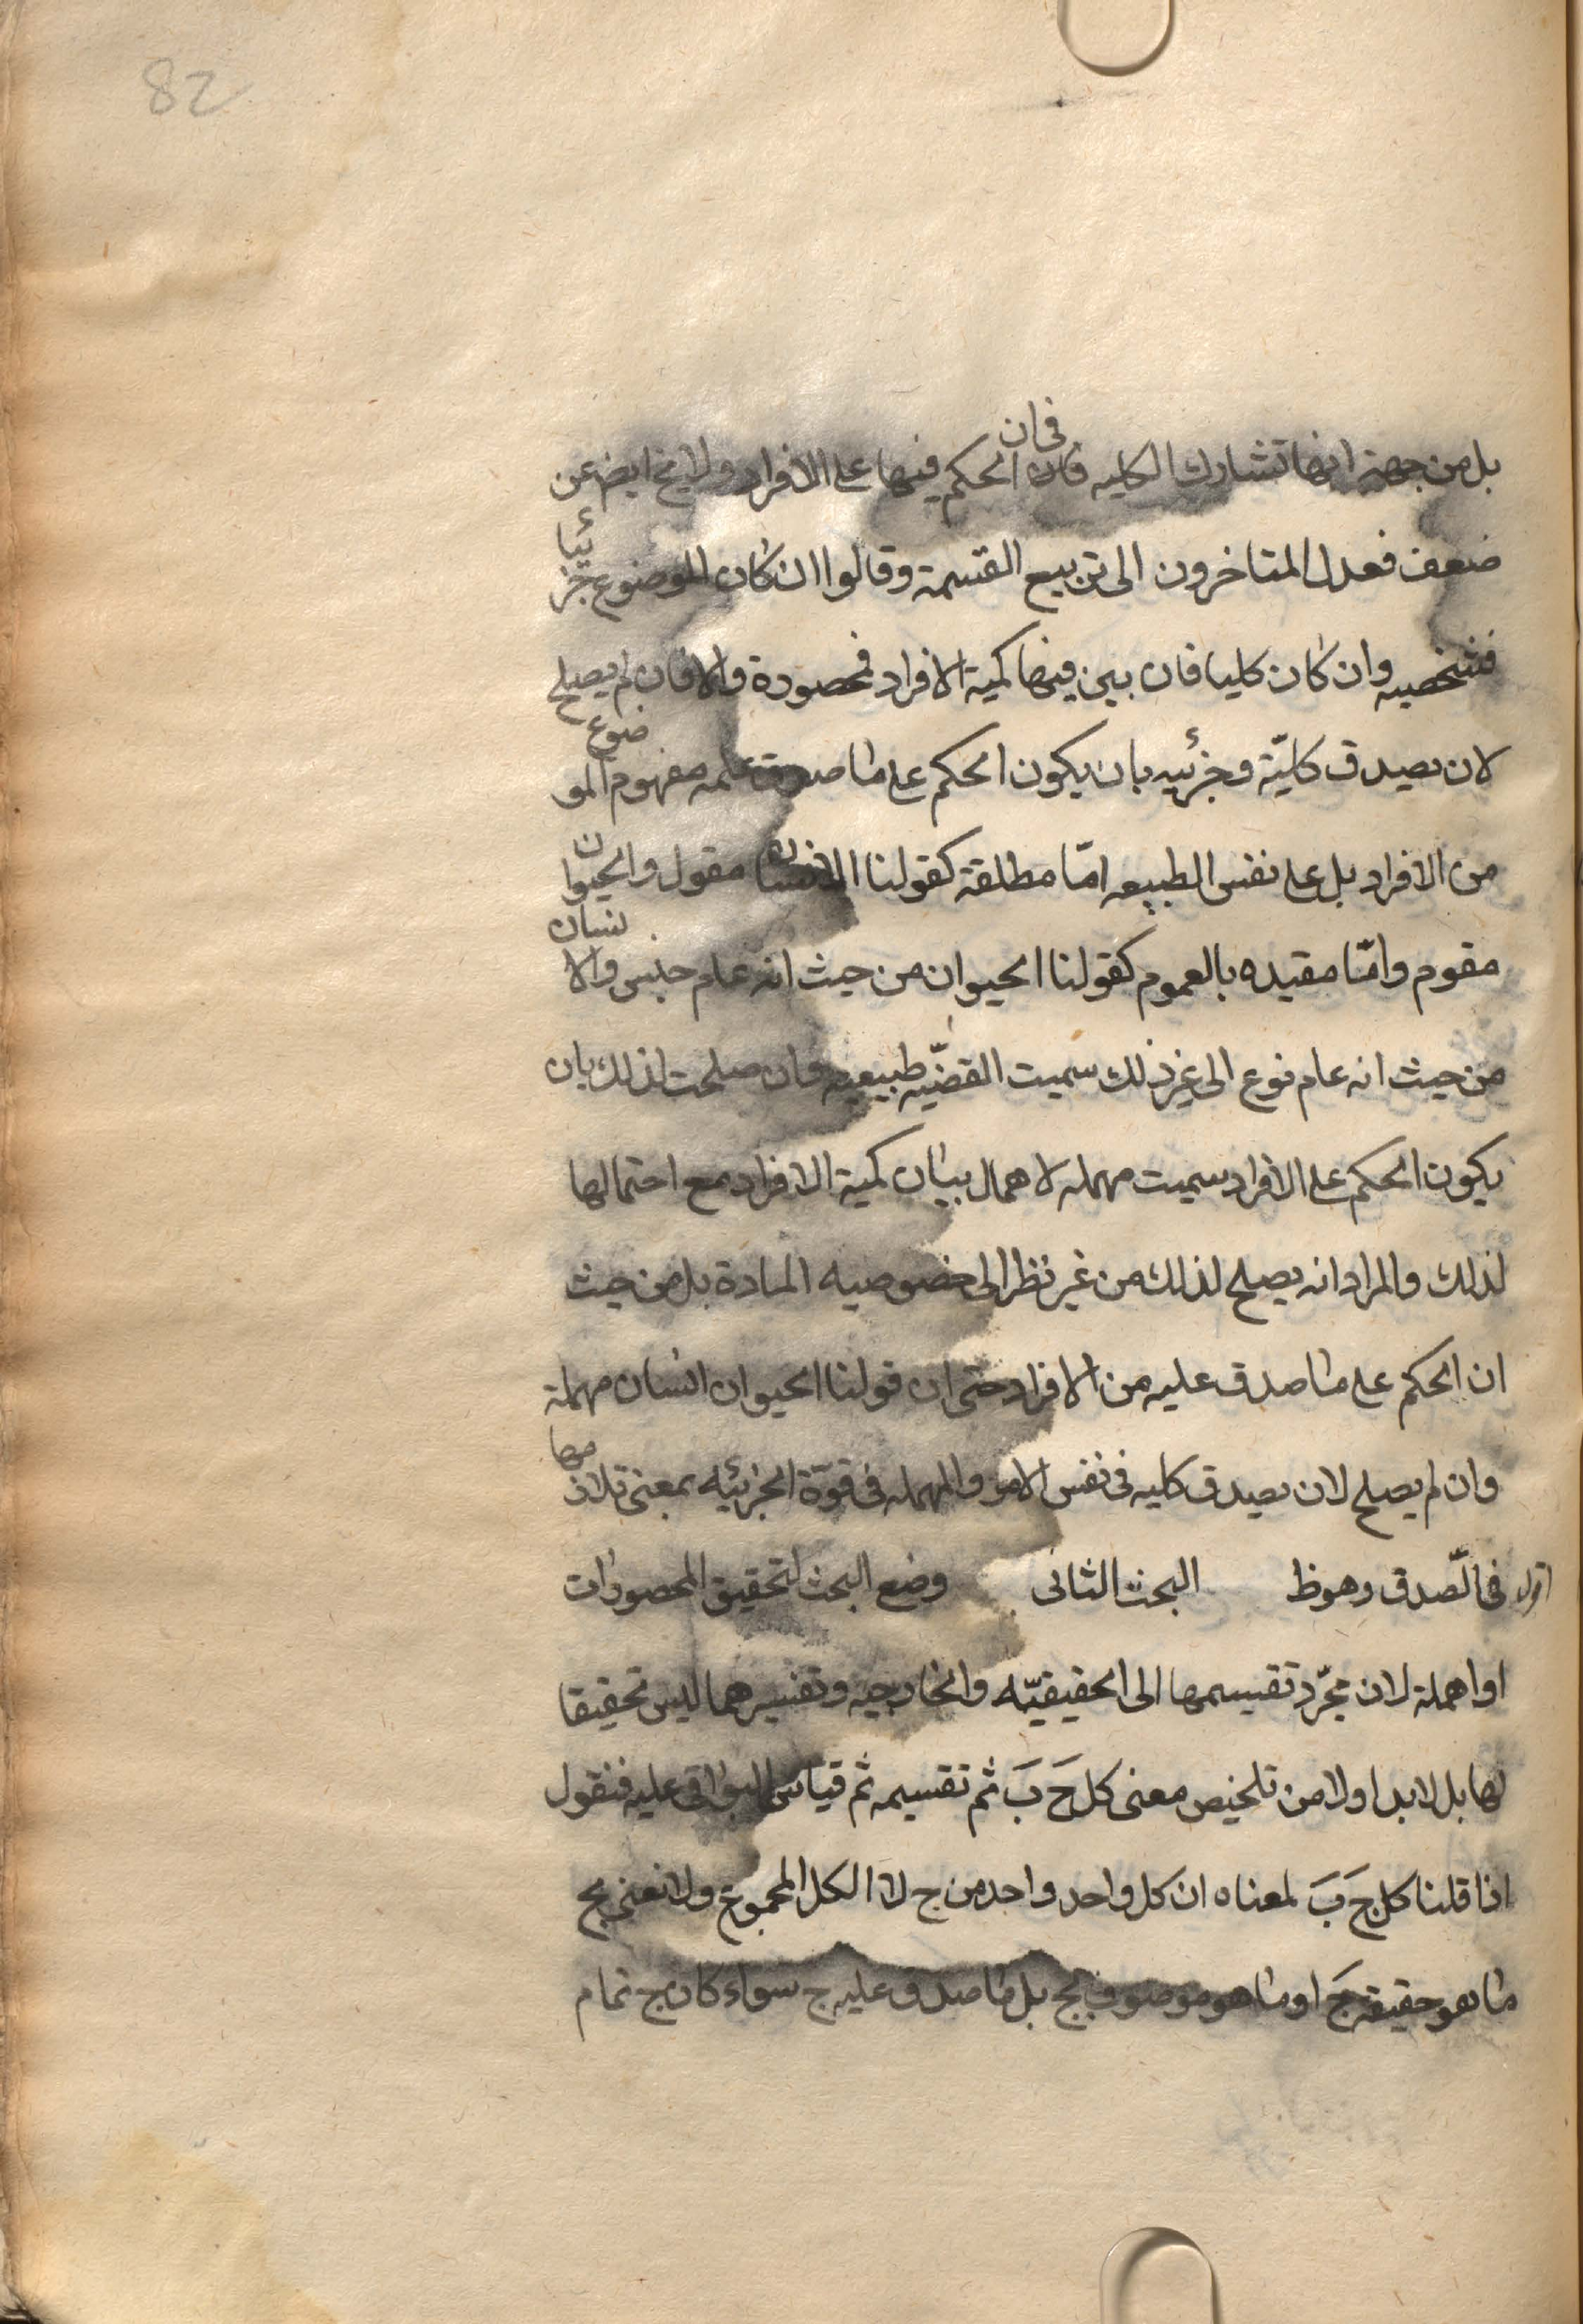 82
بل من جهة انها تشارك الكليه فان فى ان الحكم فيها على الافراد ولايخ ايض عن
ضعف فعدل المتاخرون الى تربيع القسمة وقالوا ان كان الموضوع جزئيا
فشخصيه وان كان كليا فان بين فيها كمية الافراد فمحصورة والا فان لم يصلح
لان يصدق كليّة وجزئيه بان يكون الحكم على ما صدق عليه مفهوم الموضوع
من الافراد بل على نفس الطبيعه امّا مطلقة كقولنا الانسان مقول والحيوان
مقوم وامّا مقيده بالعموم كقولنا الحيوان من حيث انه عام جنس والانسان
من حيث انه عام نوع الى غير ذلك سميت القضيّه طبيعيه وان صلحت لذلك بان
يكون الحكم على الافراد سميت مهمله لاهمال بيان كمية الافراد مع احتمالها
لذلك والمراد انه يصلح لذلك من غير نظر الى خصوصيه المادة بل من حيث
ان الحكم على ما صدق عليه من الافراد حتى ان قولنا الحيوان انسان مهملة
وان لم يصلح لان يصدق كليه فى نفس الامر والمهمله فى قوّة الجزئيه بمعنى تلازمها
فى الّصدق وهوظ البحث الثانى وضع البحث لتحقيق المحصورات
اقول
او اهملة لان مجّرد تقسيمها الى الحقيقيّه والخارجيه وتفسيرهما ليس تحقيقا
لها بل لابد اولا من تلخيص معنى كل جَ بَ ثم تقسيمه ثم قياس البواقى عليه فنقول
اذا قلنا كل جَ بَ لمعناه ان كل واحد واحد من ج لا الكل المجموع ولا نعنى بج
ما هو حقيقة جَ او ما هو موصوف بج بل ما صدق عليه ج سواء كان ج تمام